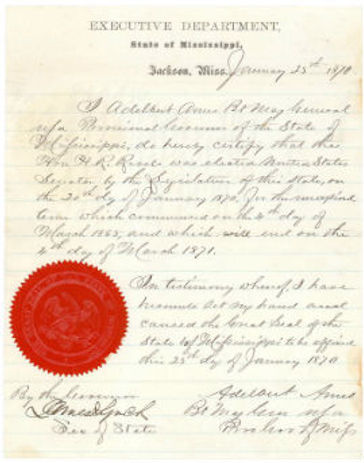 EXECUTIVE DEPARTMENT,
State of Mississippi,
Jackson, Miss. January 25th 1870
I Adelbert Ames Bt Maj General
U.S.A. Provisional Governor of the State of
Mississippi, do hereby certify that the
Hon H. R. Revels was elected United States
Senator by the Legislature of this state, on
the 20th day of January 1870, for the unexpired
term which commenced on the 4th day of
March 1865, and which will end on the
4th day of March 1871.
In testimony whereof, I have
hereunto set my hand and
caused the Great Seal of the
State of Mississippi to be affixed
this 25th day of January 1870
By the Governor
Adelbert Ames
James Lynch
Bt Maj Gen U.S.A.
Sec of State
Pro Gov of Miss